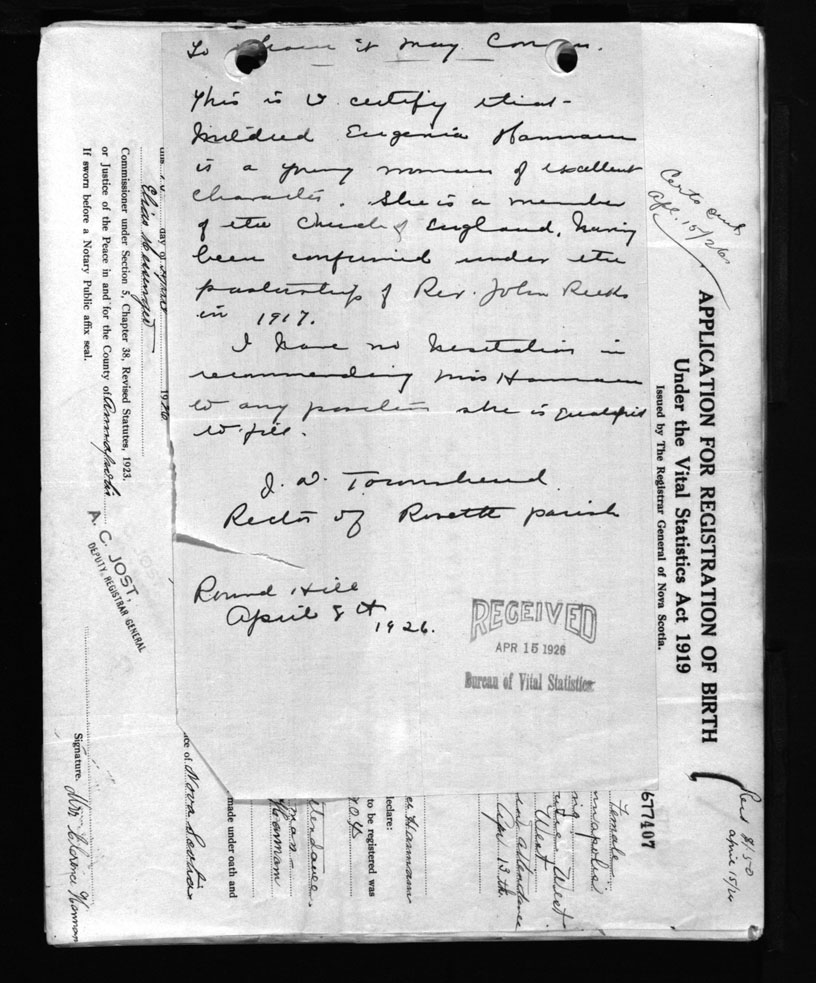 To whom it may Concern.
This is to certify that
Mildred Eugenia Hannam
is a young woman of excellent
character. She is a member
of the Church of England, having
been confirmed under the
pastorship of Rev. John Reeks
in 1917.
I have no hesitation in
recommending Miss Hannam
to any position she is qualified
to fill.
J. W. Townshend
Rector of Rosette parish
Round Hill
April 8th 1926.
RECEIVED
APR 15 1926
Bureau of Vital Statistics
APPLICATION FOR REGISTRATION OF BIRTH
Under the Vital Statistics Act 1919
Issued by The Registrar General of Nova Scotia.
Apl. 15/26
Recd 8/150
April 15/26
677407
Female
nnapolis
ing
West
West
in attendance
Apr 13th.
Hannam
eclare:
to be registered was
904
ttendance
man
Hannam
made under oath and
ce of Nova Scotia
day of April 1926
Commissioner under Section 5, Chapter 38, Revised Statutes, 1923.
or Justice of the Peace in and for the County of Annapolis
If sworn before a Notary Public affix seal.
A. C. JOST,
DEPUTY REGISTRAR GENERAL
Signature. Mrs Florence Hannam